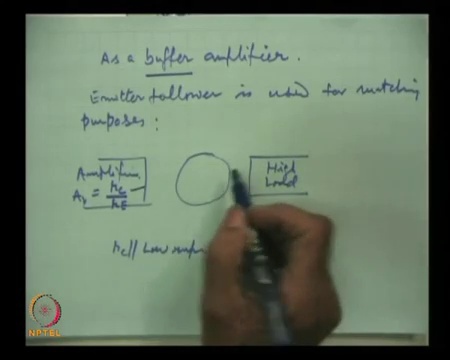 As a buffer amplifier.
Emitter follower is used for matching
purposes :
Amplifier
High
Load
NPTEL